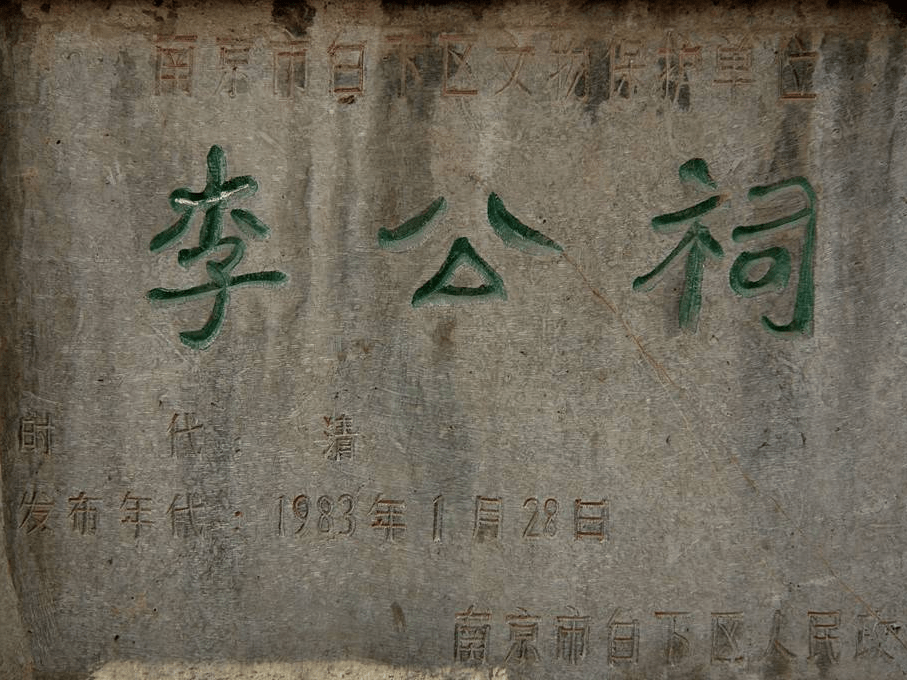 南京市白下区文物保护单位
李公祠
时 代：清
发布年代：1983年1月28日
南京市白下区人民政